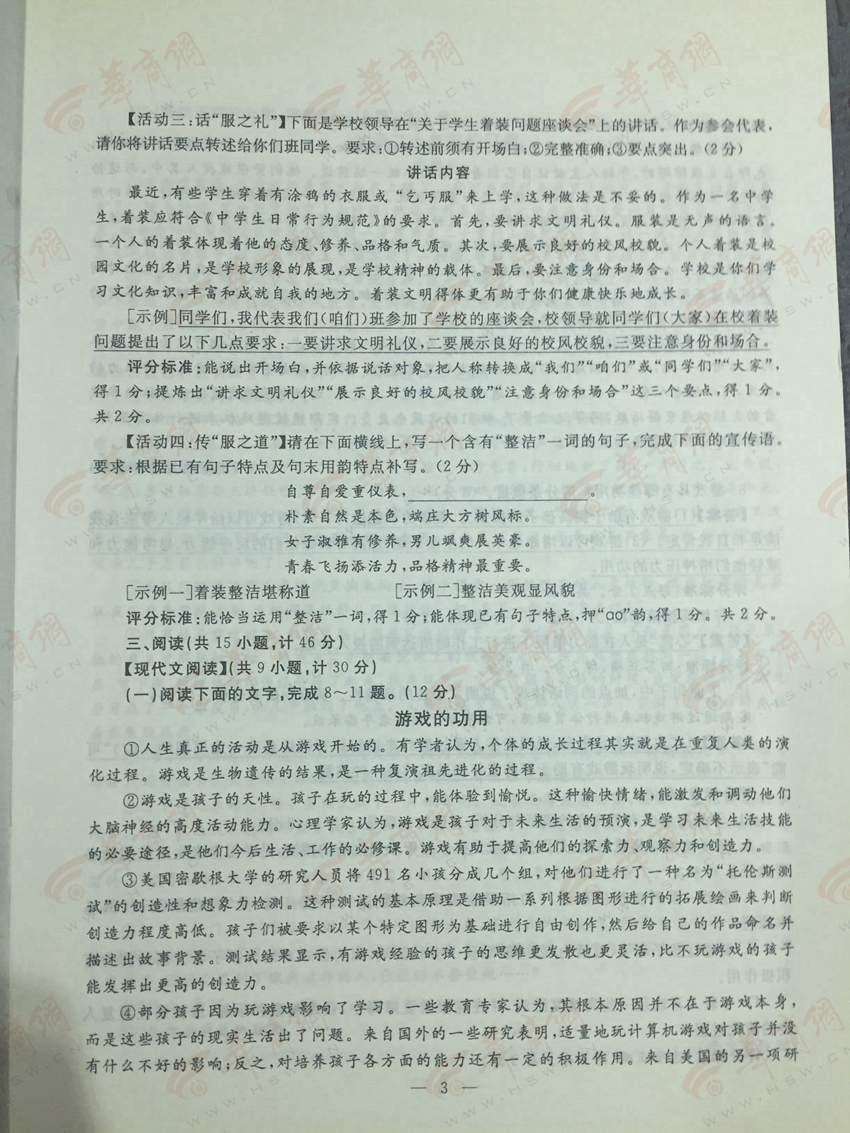 【活动三:话“服之礼”】下面是学校领导在“关于学生着装问题座谈会”上的讲话。作为参会代表,
请你将讲话要点转述给你们班同学。要求:①转述前须有开场白;②完整准确;③要点突出。(2分)
讲话内容
最近,有些学生穿着有涂鸦的衣服或“乞丐服”来上学,这种做法是不妥的。作为一名中学
生,着装应符合《中学生日常行为规范》的要求。首先,要讲求文明礼仪。服装是无声的语言。
一个人的着装体现着他的态度、修养、品格和气质。其次,要展示良好的校风校貌。个人着装是校
园文化的名片,是学校形象的展现,是学校精神的载体。最后,要注意身份和场合。学校是你们学
习文化知识,丰富和成就自我的地方。着装文明得体更有助于你们健康快乐地成长。
[示例]同学们,我代表我们(咱们)班参加了学校的座谈会,校领导就同学们(大家)在校着装
问题提出了以下几点要求:一要讲求文明礼仪,二要展示良好的校风校貌,三要注意身份和场合。
评分标准:能说出开场白,并依据说话对象,把人称转换成“我们”“咱们”或“同学们”“大家”,
得1分;提炼出“讲求文明礼仪”“展示良好的校风校貌”“注意身份和场合”这三个要点,得1分。
共2分。
【活动四:传“服之道”】请在下面横线上,写一个含有“整洁”一词的句子,完成下面的宣传语。
要求:根据已有句子特点及句末用韵特点补写。(2分)
自尊自爱重仪表,____________________。
朴素自然是本色,端庄大方树风标。
女子淑雅有修养,男儿飒爽展英豪。
青春飞扬添活力,品格精神最重要。
[示例一]着装整洁堪称道 [示例二]整洁美观显风貌
评分标准:能恰当运用“整洁”一词,得1分;能体现已有句子特点,押“ao”韵,得1分。共2分。
三、阅读(共15小题,计46分)
【现代文阅读】(共9小题,计30分)
(一)阅读下面的文字,完成8~11题。(12分)
游戏的功用
①人生真正的活动是从游戏开始的。有学者认为,个体的成长过程其实就是在重复人类的演
化过程。游戏是生物遗传的结果,是一种复演祖先进化的过程。
②游戏是孩子的天性。孩子在玩的过程中,能体验到愉悦。这种愉快情绪,能激发和调动他们
大脑神经的高度活动能力。心理学家认为,游戏是孩子对于未来生活的预演,是学习未来生活技能
的必要途径,是他们今后生活、工作的必修课。游戏有助于提高他们的探索力、观察力和创造力。
③美国密歇根大学的研究人员将491名小孩分成几个组,对他们进行了一种名为“托伦斯测
试”的创造性和想象力检测。这种测试的基本原理是借助一系列根据图形进行的拓展绘画来判断
创造力程度高低。孩子们被要求以某个特定图形为基础进行自由创作,然后给自己的作品命名并
描述出故事背景。测试结果显示,有游戏经验的孩子的思维更发散也更灵活,比不玩游戏的孩子
能发挥出更高的创造力。
④部分孩子因为玩游戏影响了学习。一些教育专家认为,其根本原因并不在于游戏本身,
而是这些孩子的现实生活出了问题。来自国外的一些研究表明,适量地玩计算机游戏对孩子并没
有什么不好的影响;反之,对培养孩子各方面的能力还有一定的积极作用。来自美国的另一项研
— 3 —
華商網
WWW.HSW.CN